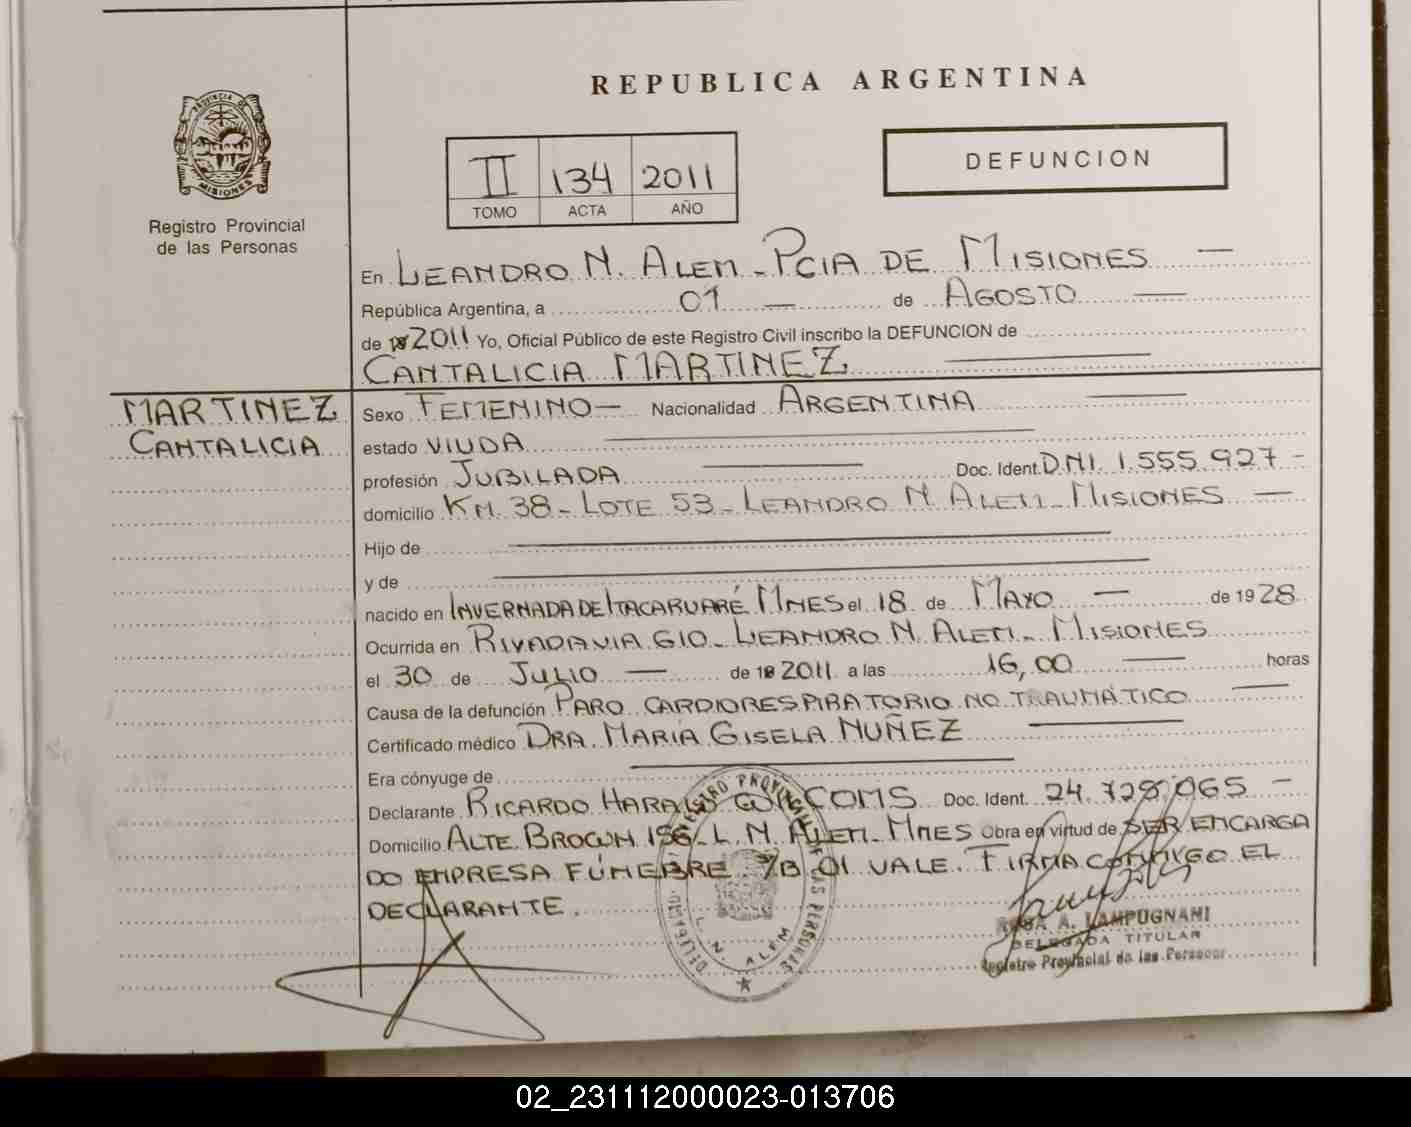 REPUBLICA ARGENTINA
PROVINCIA DE MISIONES
Registro Provincial
de las Personas
II 134 2011
TOMO ACTA AÑO
DEFUNCION
En LEANDRO N. ALEM - PCIA DE MISIONES —
República Argentina, a 01 — de AGOSTO —
de 2011 Yo, Oficial Público de este Registro Civil inscribo la DEFUNCION de
CANTALICIA MARTINEZ —
MARTINEZ
CANTALICIA
Sexo FEMENINO — Nacionalidad ARGENTINA —
estado VIUDA —
profesión JUBILADA — Doc. Ident. DNI. 1.555.927 -
domicilio KM. 38 - LOTE 53 - LEANDRO N. ALEM - MISIONES —
Hijo de —
y de —
nacido en INVERNADA DE ITACARUARÉ MNES el 18 de MAYO — de 1928
Ocurrida en RIVADAVIA 610 - LEANDRO N. ALEM - MISIONES
el 30 de JULIO — de 2011 a las 16,00 — horas
Causa de la defunción PARO CARDIORESPIRATORIO NO TRAUMÁTICO —
Certificado médico DRA. MARIA GISELA NUÑEZ —
Era cónyuge de —
Declarante RICARDO HARALD COMS Doc. Ident. 24.728.065 -
Domicilio ALTE. BROWN 156 - L. N. ALEM - MNES Obra en virtud de SER ENCARGA
DO EMPRESA FÚNEBRE. 01 VALE. FIRMA CONMIGO EL
DECLARANTE.
REGISTRO PROVINCIAL DE LAS PERSONAS
DELEGACIÓN
L. N. ALEM
ROSA A. LAMPUGNANI
DELEGADA TITULAR
Registro Provincial de las Personas
02_231112000023-013706